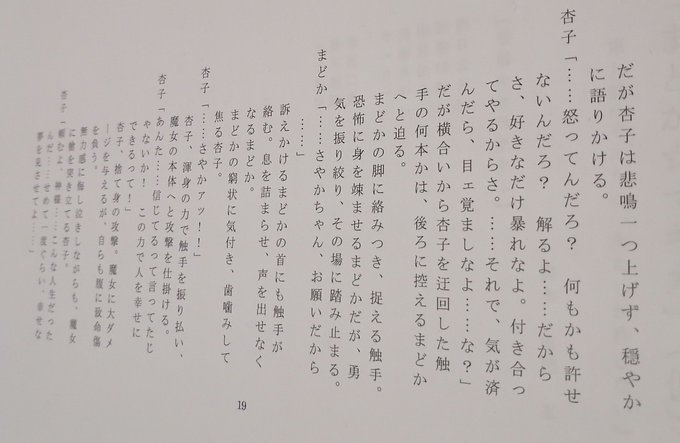 だが杏子は悲鳴一つ上げず、穏やか
に語りかける。
杏子「……怒ってんだろ？　何もかも許せ
ないんだろ？　解るよ……だから
さ、好きなだけ暴れなよ。付き合っ
てやるからさ。……それで、気が済
んだら、目ェ覚ましなよ……な？」
だが横合いから杏子を迂回した触
手の何本かは、後ろに控えるまどか
へと迫る。
まどかの脚に絡みつき、捉える触手。
恐怖に身を竦ませるまどかだが、勇
気を振り絞り、その場に踏み止まる。
まどか「……さやかちゃん、お願いだから
……」
訴えかけるまどかの首にも触手が
絡む。息を詰まらせ、声を出せなく
なるまどか。
まどかの窮状に気付き、歯噛みして
焦る杏子。
杏子「……さやかァッ！！」
杏子、渾身の力で触手を振り払い、
魔女の本体へと攻撃を仕掛ける。
杏子「あんた……信じてるって言ってたじ
ゃないか！　この力で人を幸せに
できるって！」
杏子、捨て身の攻撃。魔女に大ダメ
ージを与えるが、自らも腹に致命傷
を負う。
無力感に悔し泣きしながらも、魔女
に槍を突き立てる杏子。
杏子「頼むよ、神様……こんな人生だった
んだ……せめて一度ぐらい、幸せな
夢を見させてよ……」
19